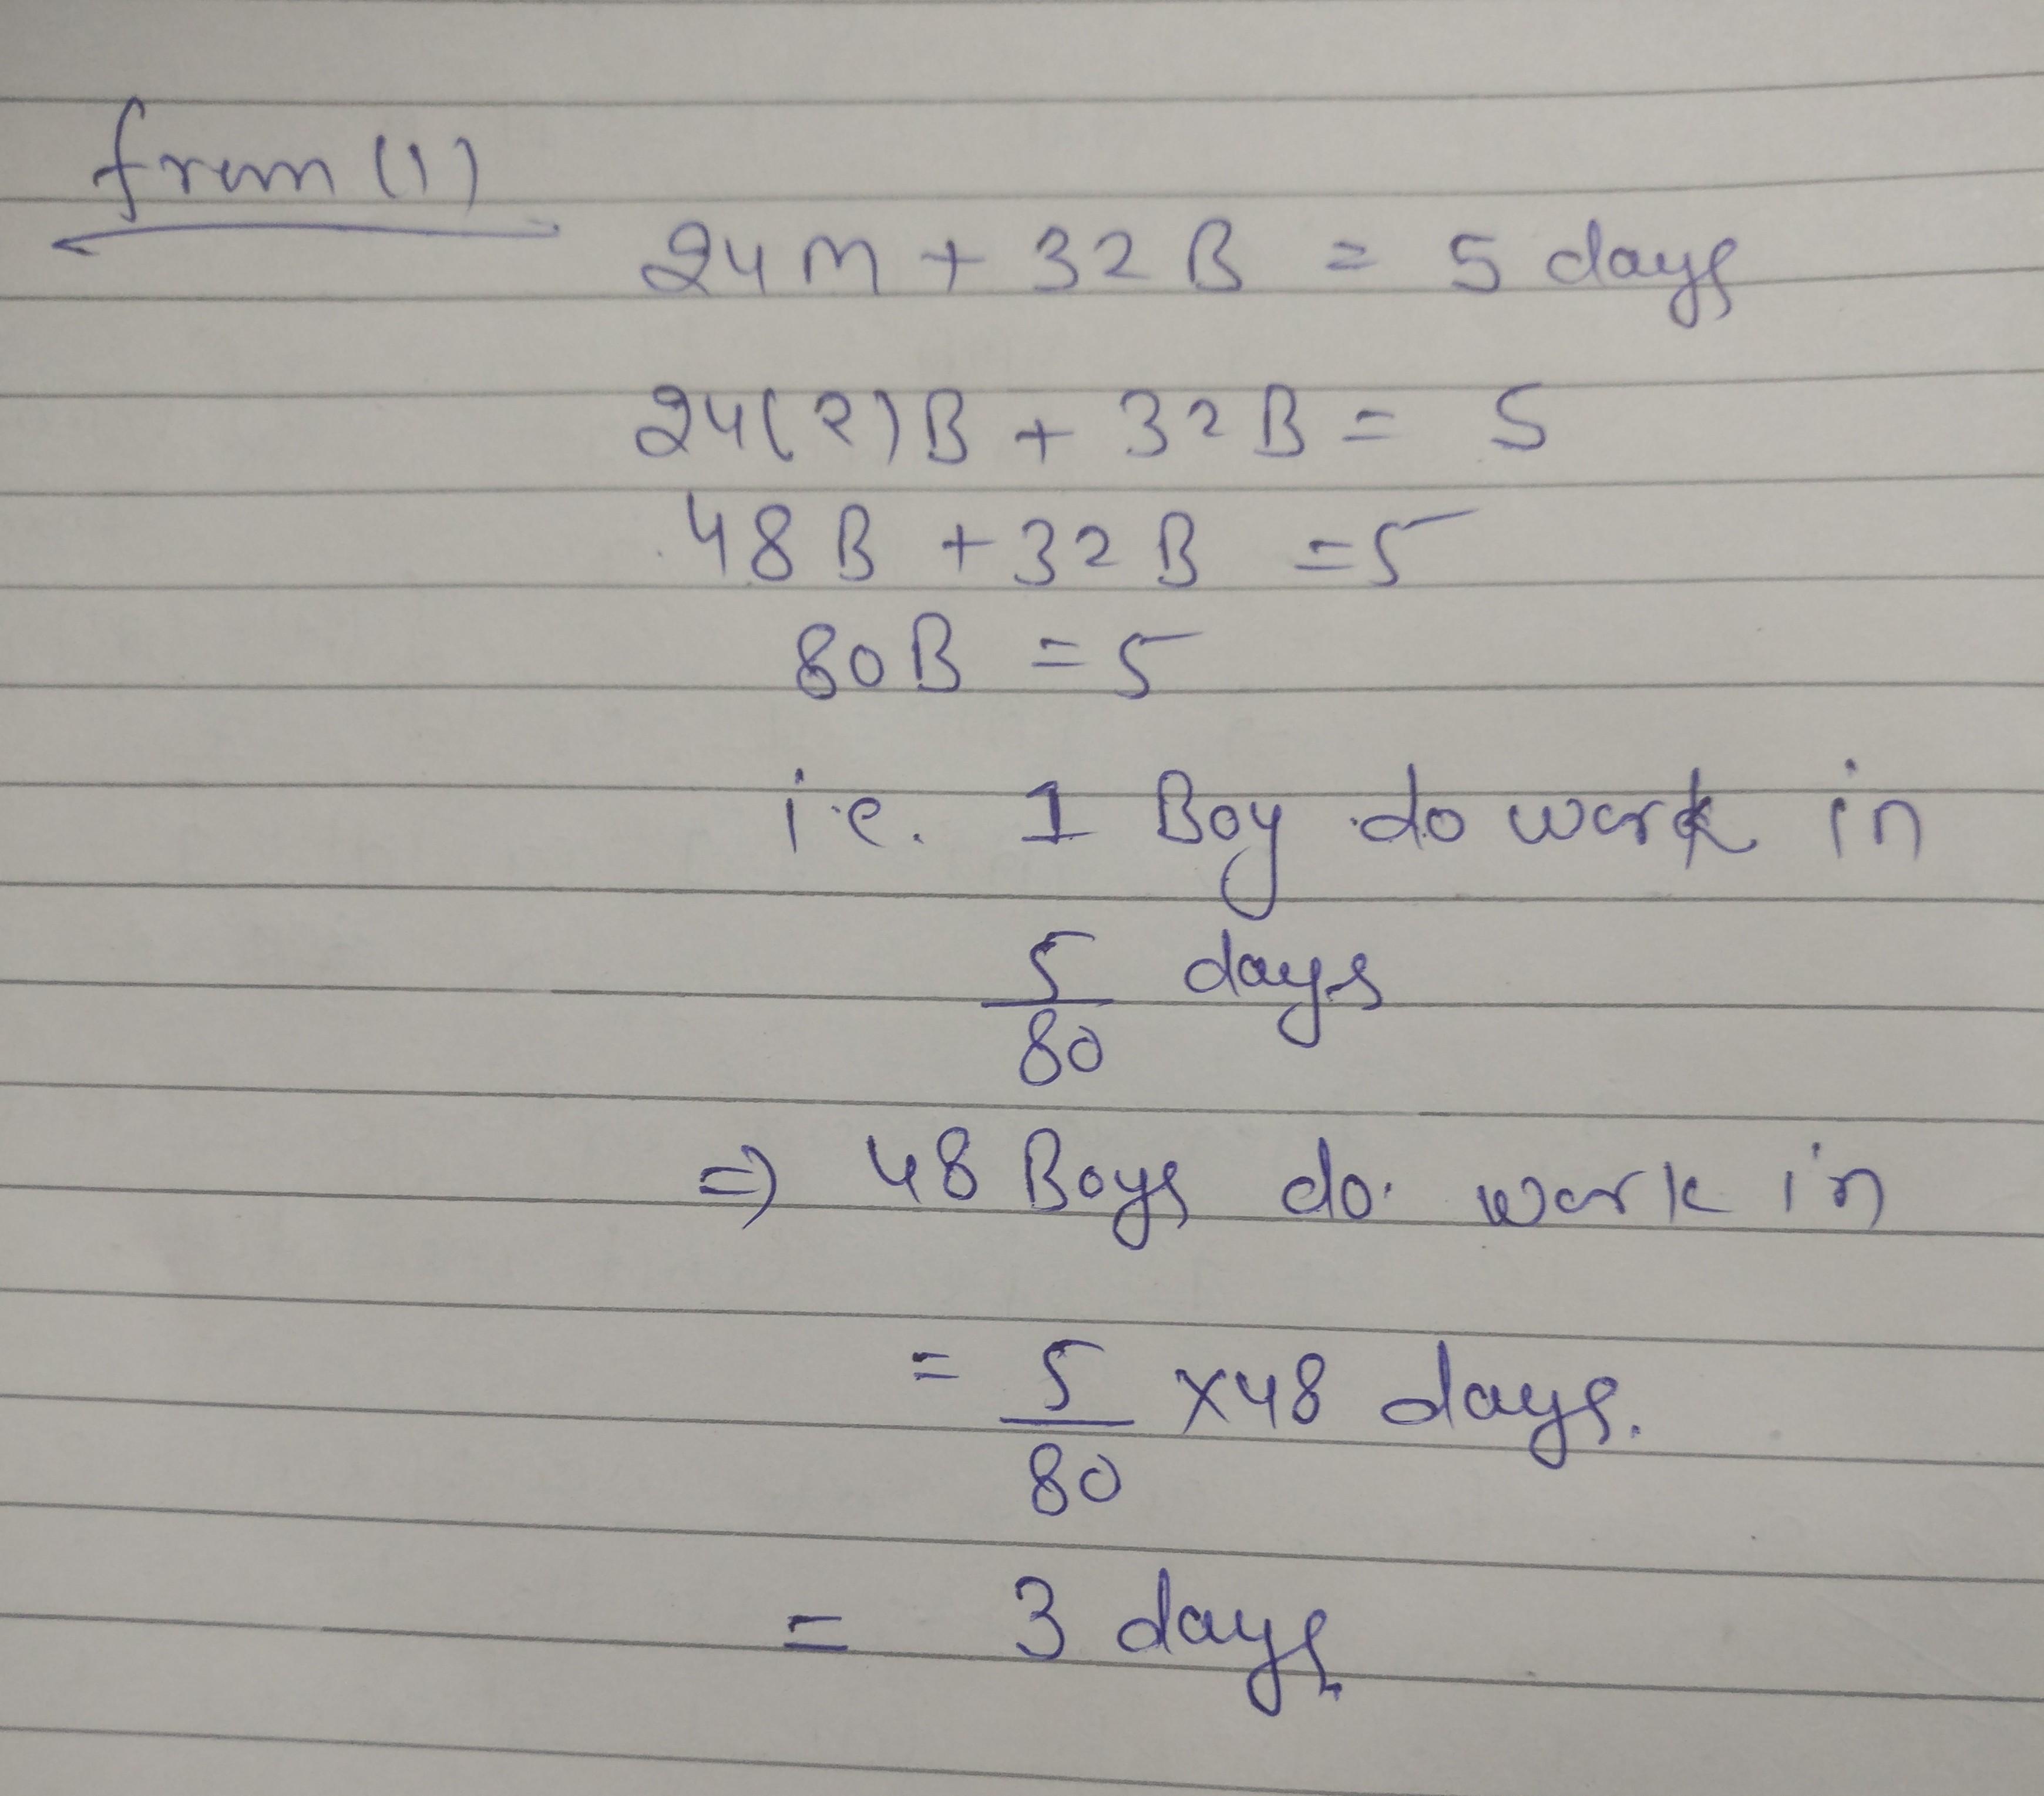 from (1)
24M + 32B = 5 days
24(2)B + 32B = 5
48B + 32B = 5
80B = 5
i.e. 1 Boy do work in
5/80 days
⇒ 48 Boys do work in
= 5/80 × 48 days.
= 3 days